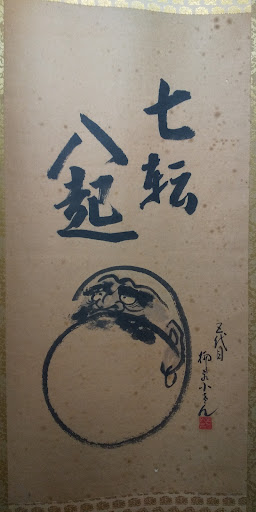 七転
八起
五代目
柳家小さん